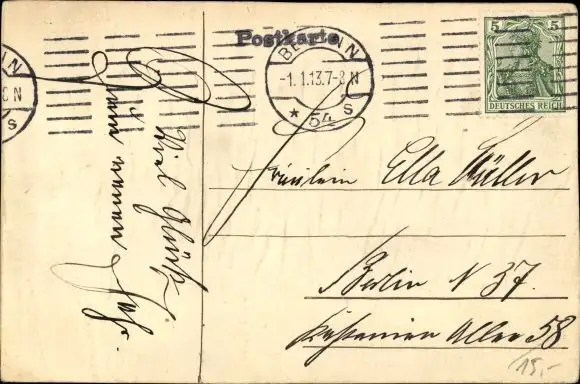 Postkarte
BERLIN N
-1.1.13.7-8N
* 54 s
5 5
DEUTSCHES REICH
Viel Glück
zum neuen
Jahr.
Fräulein Ella Müller
Berlin N 37.
Kastanien Allee 58
15,-